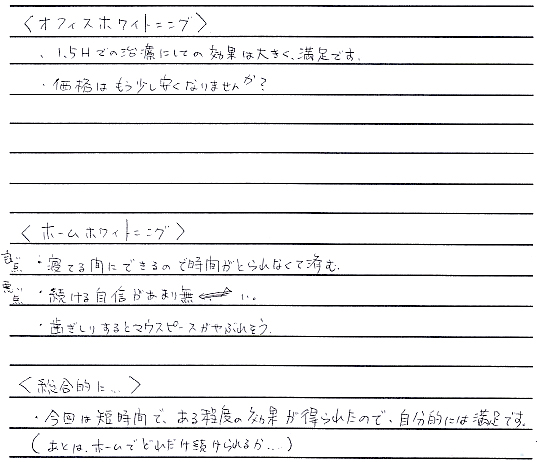 〈オフィスホワイトニング〉
・1.5Hでの治療にしての効果は大きく、満足です。
・価格はもう少し安くなりませんか?
〈ホームホワイトニング〉
良い点 ・寝てる間にできるので時間がとられなくて済む。
悪い点 ・続ける自信があまり無い。
・歯ぎしりするとマウスピースがやぶれそう。
〈総合的に...〉
・今回は短時間で、ある程度の効果が得られたので、自分的には満足です。
(あとは、ホームでどれだけ続けられるか...)